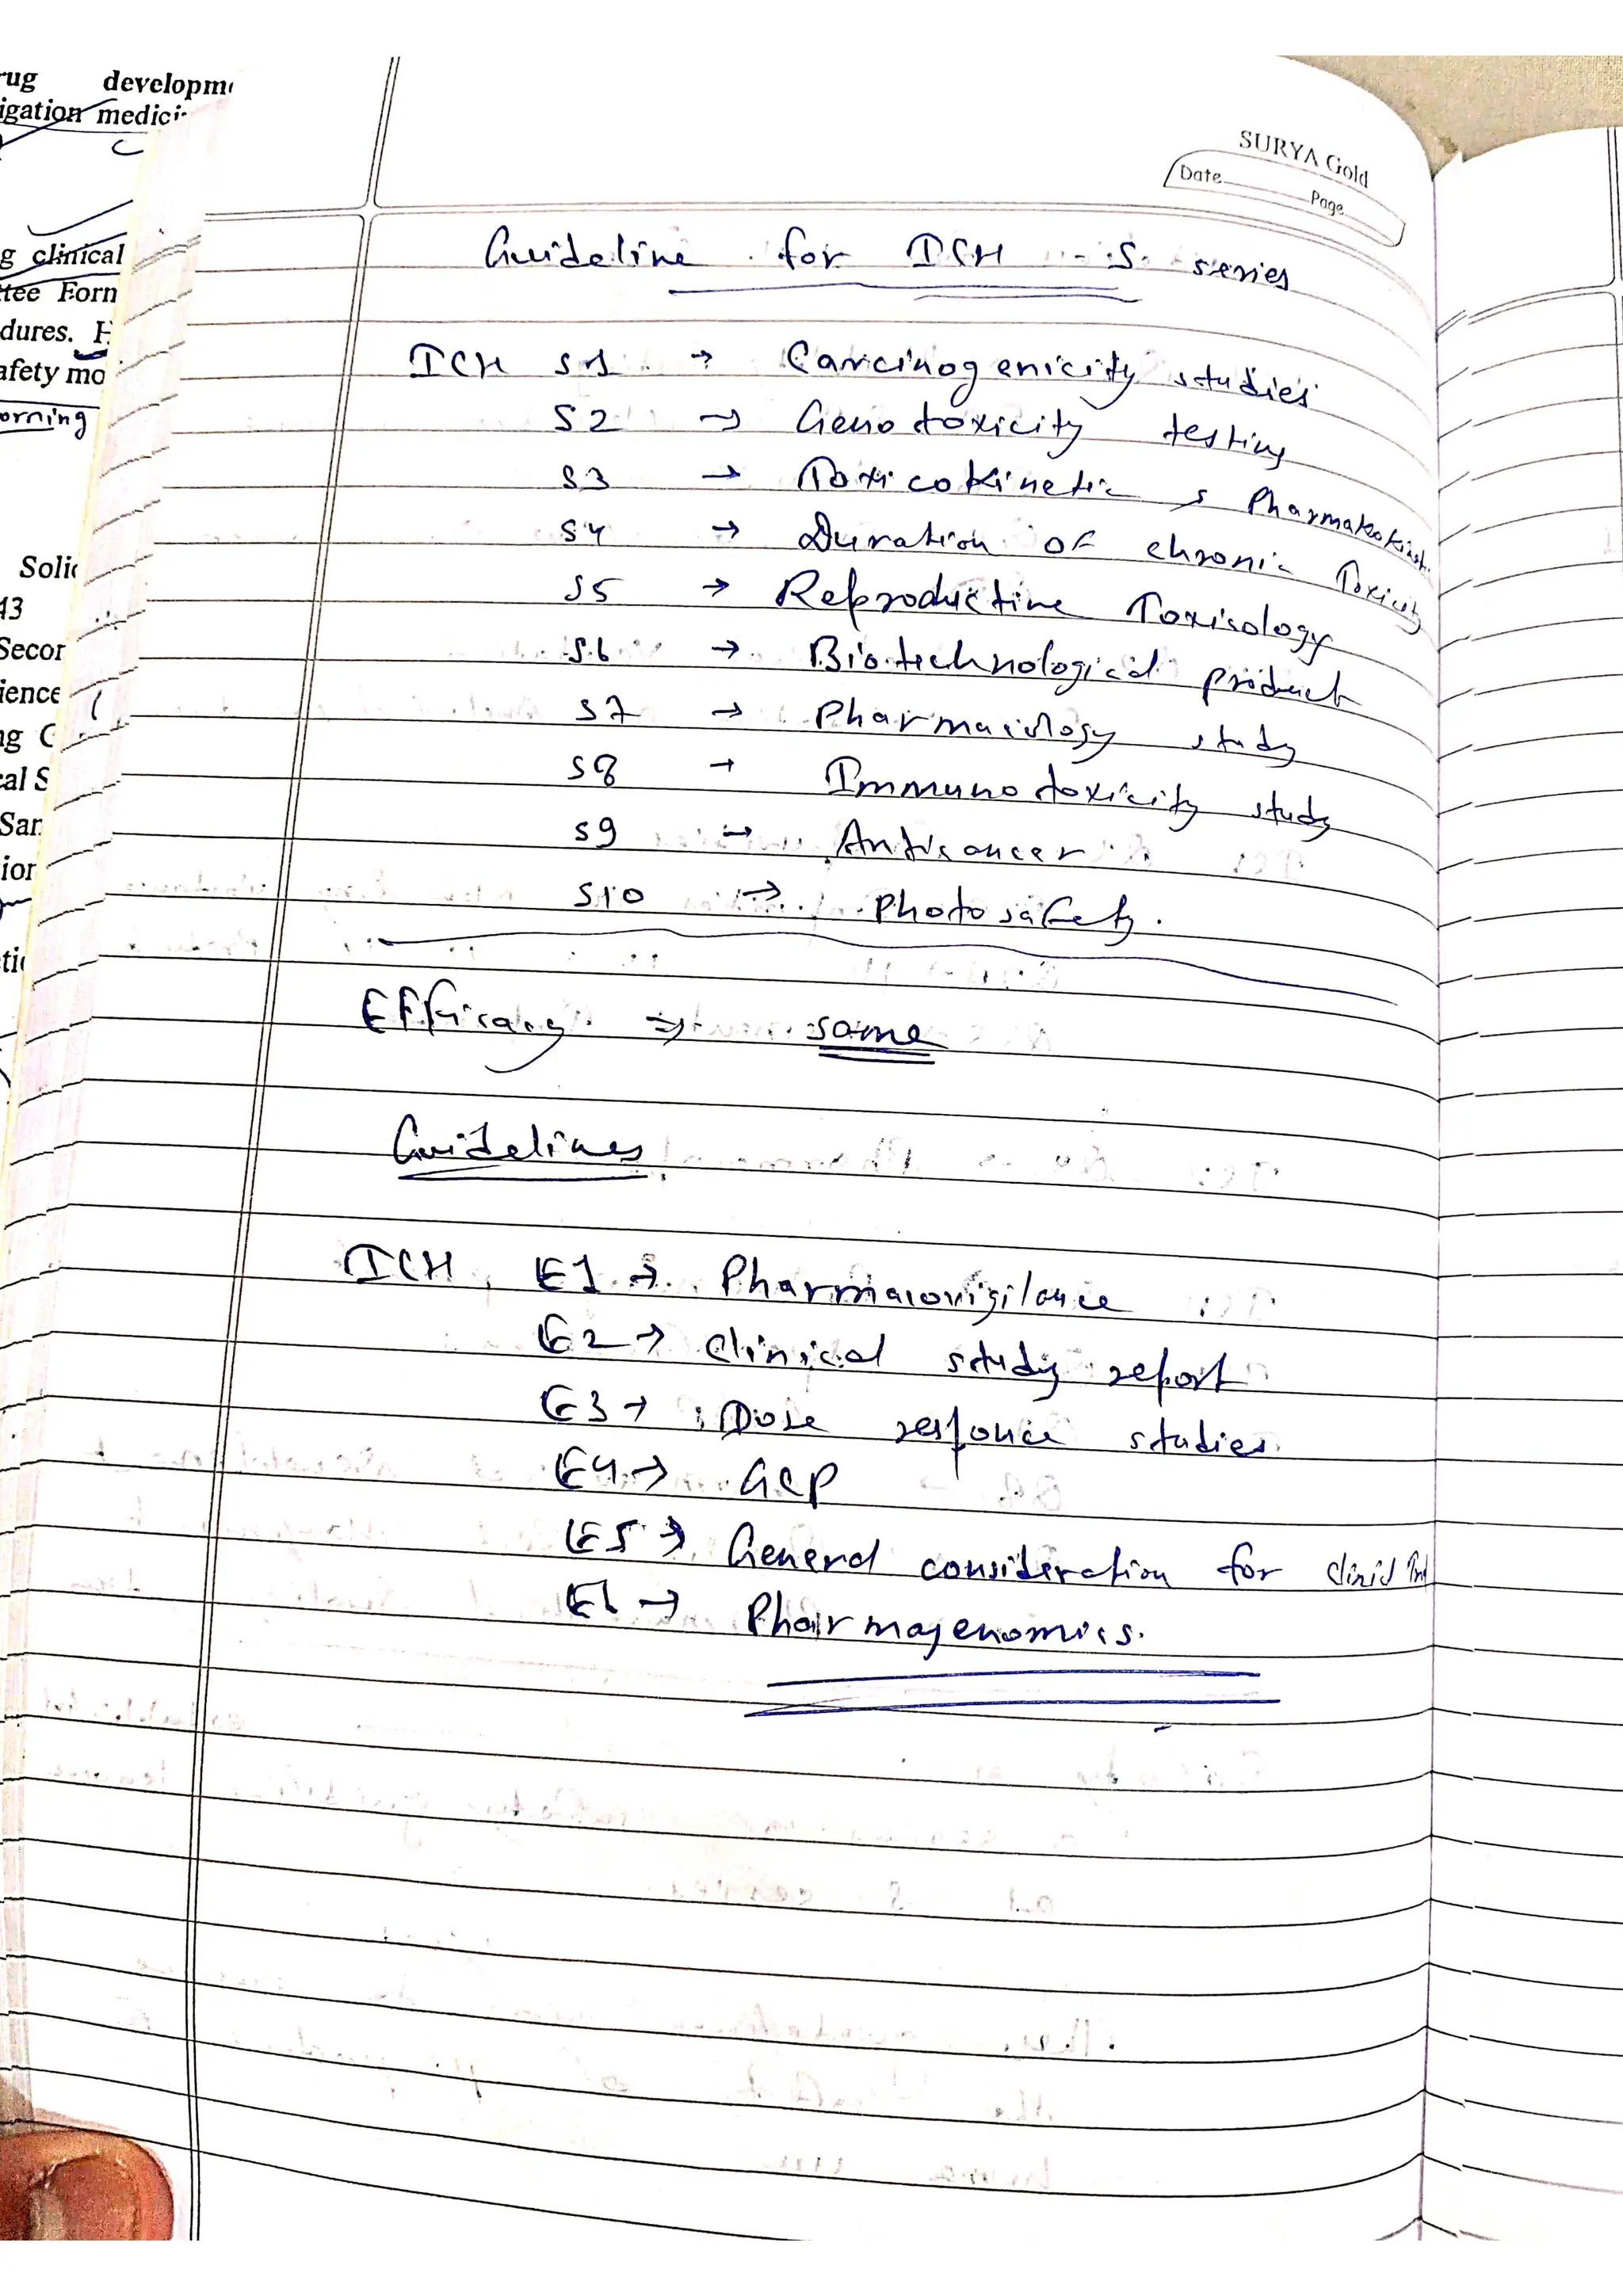 rug developm
igation medici
g clinical
ttee Form
dures. H
afety mo
orning
Solid
13
Secor
ience
ng C
cal S
San
ion
tic
SURYA Gold
Date
Page
Guideline for ICH - S. series
ICH S1 → Carcinogenicity studies
S2 → Genotoxicity testing
S3 → Toxicokinetic &
S4 → Duration of chronic Toxicity
S5 → Reproductive Toxicology
S6 → Biotechnological product
S7 → Pharmacology study
S8 → Immunotoxicity study
S9 → Anticancer
S10 → Photosafety.
Efficacy ⇒ same
Guidelines
ICH E1 → Pharmacovigilance
E2 → Clinical study report
E3 → Dose response studies
E4 → GCP
E5 → General consideration for
E6 → Pharmagenomics.